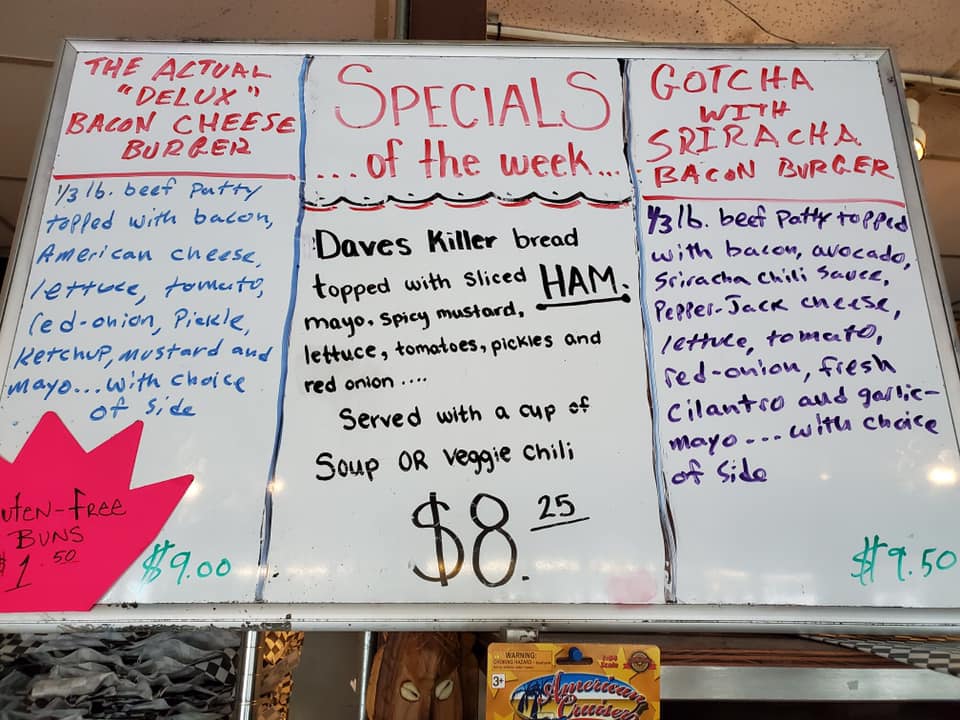 THE ACTUAL
"DELUX"
BACON CHEESE
BURGER
1/3 lb. beef patty
topped with bacon,
American cheese,
lettuce, tomato,
red-onion, Pickle,
Ketchup, mustard and
mayo... with choice
of side
$9.00
uten-free
BUNS
$1.50
SPECIALS
...of the week...
Daves Killer bread
topped with sliced HAM.
mayo. spicy mustard,
lettuce, tomatoes, pickles and
red onion ....
Served with a cup of
Soup OR Veggie Chili
$8.25
GOTCHA
WITH
SRIRACHA
BACON BURGER
1/3 lb. beef patty topped
with bacon, avocado,
Sriracha Chili Sauce,
Pepper-Jack cheese,
lettuce, tomato,
red-onion, fresh
cilantro and garlic-
mayo.... with choice
of side
$9.50
WARNING:
CHOKING HAZARD
3+
American
Cruiser